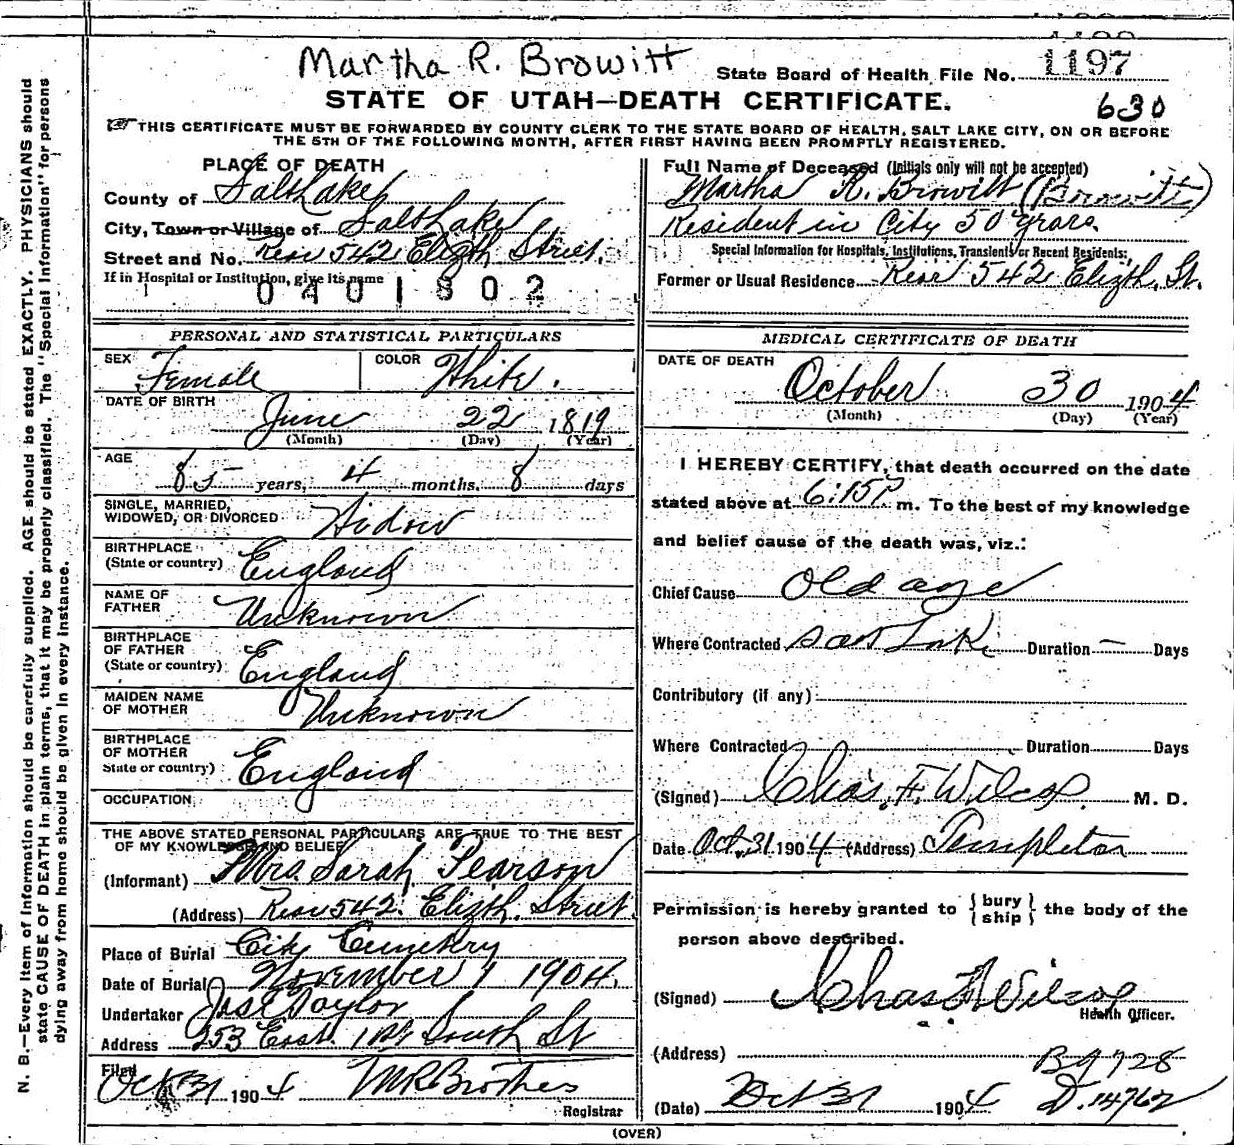 Martha R. Browitt
State Board of Health File No. 1197
STATE OF UTAH—DEATH CERTIFICATE.
630
THIS CERTIFICATE MUST BE FORWARDED BY COUNTY CLERK TO THE STATE BOARD OF HEALTH, SALT LAKE CITY, ON OR BEFORE
THE 5TH OF THE FOLLOWING MONTH, AFTER FIRST HAVING BEEN PROMPTLY REGISTERED.
PLACE OF DEATH
County of Salt Lake
City, Town or Village of Salt Lake
Street and No. Rear 542 Elizth Street.
If in Hospital or Institution, give its name
0401802
PERSONAL AND STATISTICAL PARTICULARS
SEX Female COLOR White.
DATE OF BIRTH
June 22 1819
(Month) (Day) (Year)
AGE
85 years, 4 months. 8 days
SINGLE, MARRIED,
WIDOWED, OR DIVORCED Widow
BIRTHPLACE
(State or country) England
NAME OF
FATHER Unknown
BIRTHPLACE
OF FATHER
(State or country) England
MAIDEN NAME
OF MOTHER Unknown
BIRTHPLACE
OF MOTHER
State or country) England
OCCUPATION
THE ABOVE STATED PERSONAL PARTICULARS ARE TRUE TO THE BEST
OF MY KNOWLEDGE AND BELIEF
(Informant) Mrs. Sarah Pearson
(Address) Rear 542. Elizth. Street.
Place of Burial City Cemetery
Date of Burial November 1 1904.
Undertaker Jos. E. Taylor
Address 253 East 1st South St
Filed
Oct 31 1904 MR Brothes
Registrar
Full Name of Deceased (Initials only will not be accepted)
Martha R. Browitt (Browitt)
Resident in City 50 years.
Special Information for Hospitals, Institutions, Transients or Recent Residents:
Former or Usual Residence Rear 542 Elizth. St.
MEDICAL CERTIFICATE OF DEATH
DATE OF DEATH
October 30 1904
(Month) (Day) (Year)
I HEREBY CERTIFY, that death occurred on the date
stated above at 6:15 P m. To the best of my knowledge
and belief cause of the death was, viz.:
Chief Cause Old age
Where Contracted Salt Lake Duration — Days
Contributory (if any)
Where Contracted Duration Days
(Signed) Chas. F. Wilcox. M. D.
Date Oct. 31 1904 (Address) Templeton
Permission is hereby granted to { bury ship } the body of the
person above described.
(Signed) Chas F Wilcox
Health Officer.
(Address)
B 9728
(Date) Oct 31 1904 D. 14762
(OVER)
N. B.—Every item of information should be carefully supplied. AGE should be stated EXACTLY. PHYSICIANS should
state CAUSE OF DEATH in plain terms, that it may be properly classified. The "Special Information" for persons
dying away from home should be given in every instance.